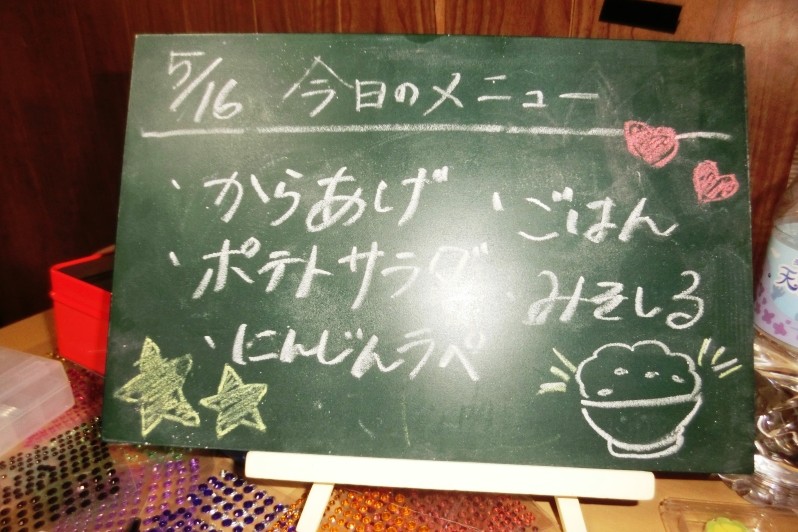 5/16 今日のメニュー
・からあげ
・ポテトサラダ
・にんじんラペ
・ごはん
みそしる
天